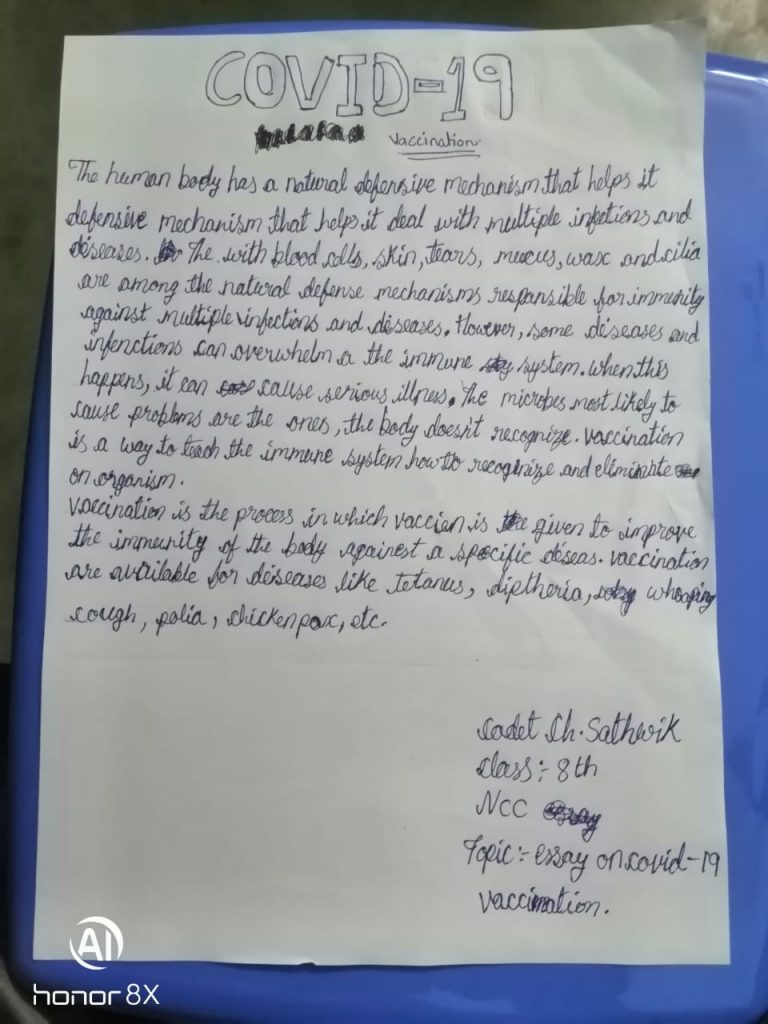 COVID-19
Vaccination.
The human body has a natural defensive mechanism that helps it
defensive mechanism that helps it deal with multiple infections and
diseases. The with blood cells, skin, tears, mucus, wax and cilia
are among the natural defense mechanisms responsible for immunity
against multiple infections and diseases. However, some diseases and
infenctions can overwhelm a the immune system. when this
happens, it can cause serious illness. The microbes most likely to
cause problems are the ones, the body doesn't recognize. vaccination
is a way to teach the immune system how to recoginize and eliminate
on organism.
Vaccination is the process in which vaccien is given to improve
the immunity of the body against a specific diseas. vaccination
are available for diseases like tetanus, diptheria, whooping
cough, polia, chickenpox, etc.
Cadet Ch. Sathwik
Class:- 8th
NCC
Topic:- essay on covid-19
vaccination.
AI
honor 8X